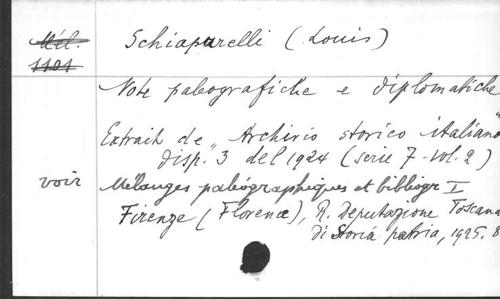 Mél. Schiaparelli (Louis)
1101
Note paleografiche e diplomatiche
Extrait de „Archivio storico italiano"
disp. 3 del 1924 (serie 7 - vol. 2)
voir Mélanges paléographiques et bibliogr I
Firenze (Florence), R. Deputazione Toscana
di Storia patria, 1925. 8